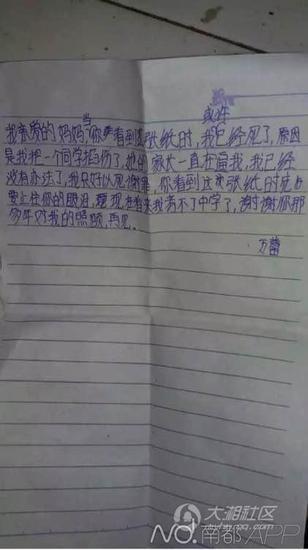 当 或许
我亲爱的妈妈,你看到这张纸时,我已经死了,原因
是我把一个同学掐伤了,她的家长一直在逼我,我已经
没有办法了,我只好以死谢罪,你看到这张纸的时
要止住你的眼泪,现在看来我考不了中学了,谢谢你那
多年对我的照顾,再见。
万
大湘社区
NO.南都APP